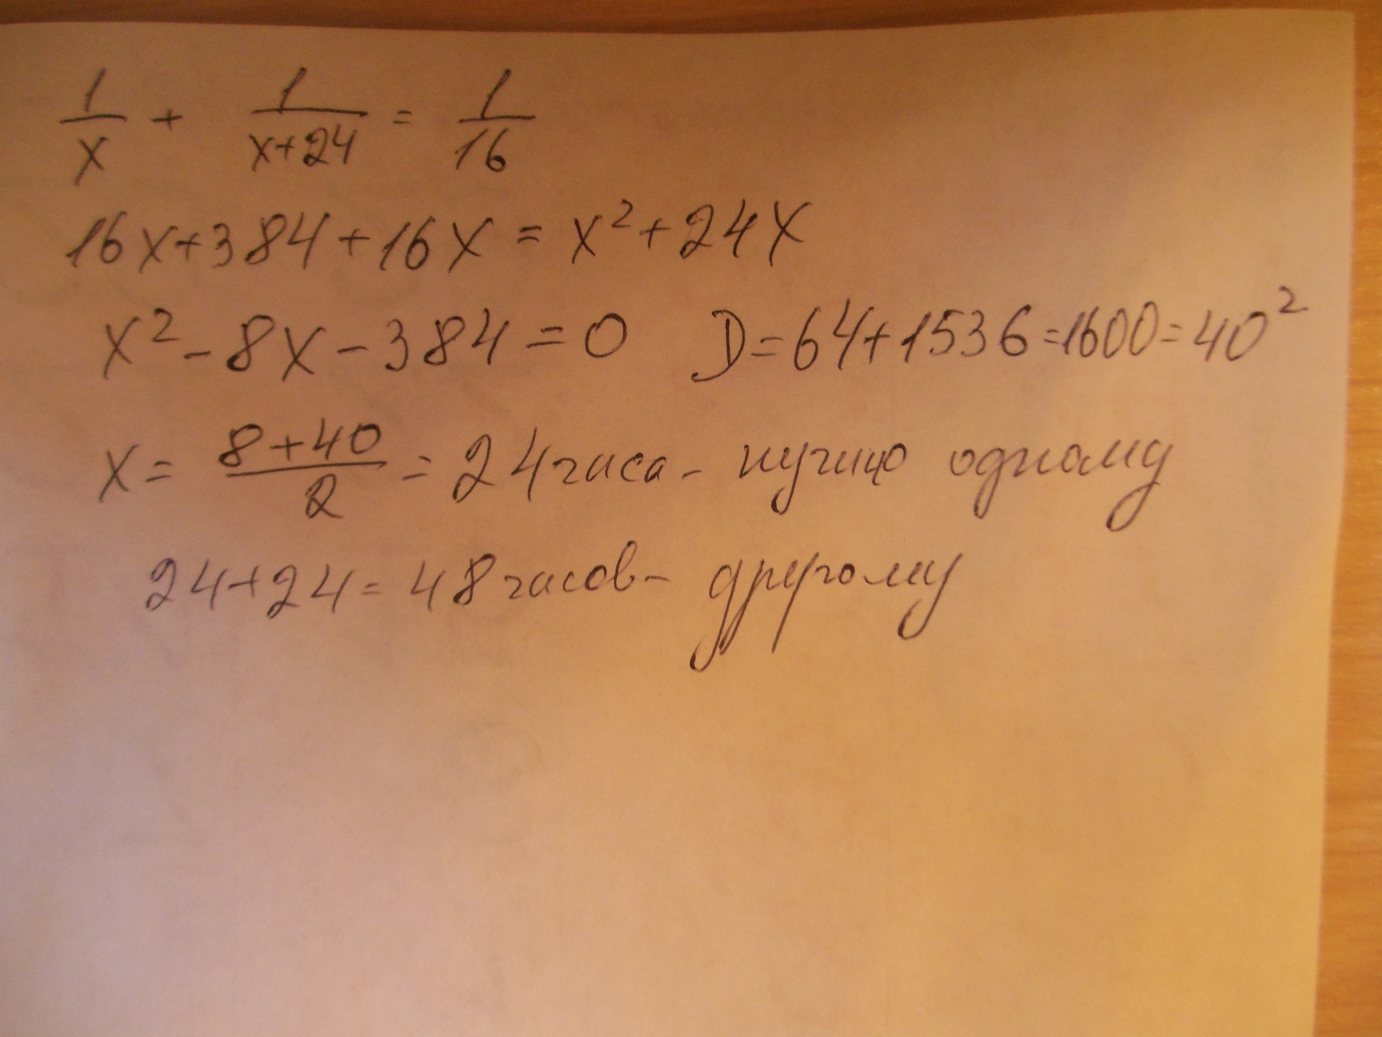 1/x + 1/(x+24) = 1/16
16x+384+16x = x²+24x
x²-8x-384=0 D=64+1536=1600=40²
x= (8+40)/2 = 24 часа - нужно одному
24+24=48 часов- другому